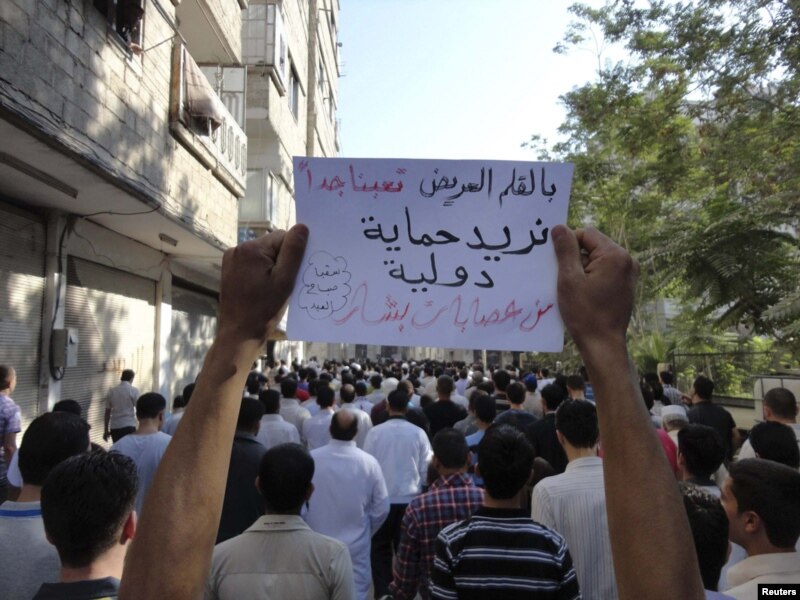 بالقلم العريض تعبنا جداً
نريد حماية
دولية
من عصابات بشار
سقبا
صباح
العيد
Reuters